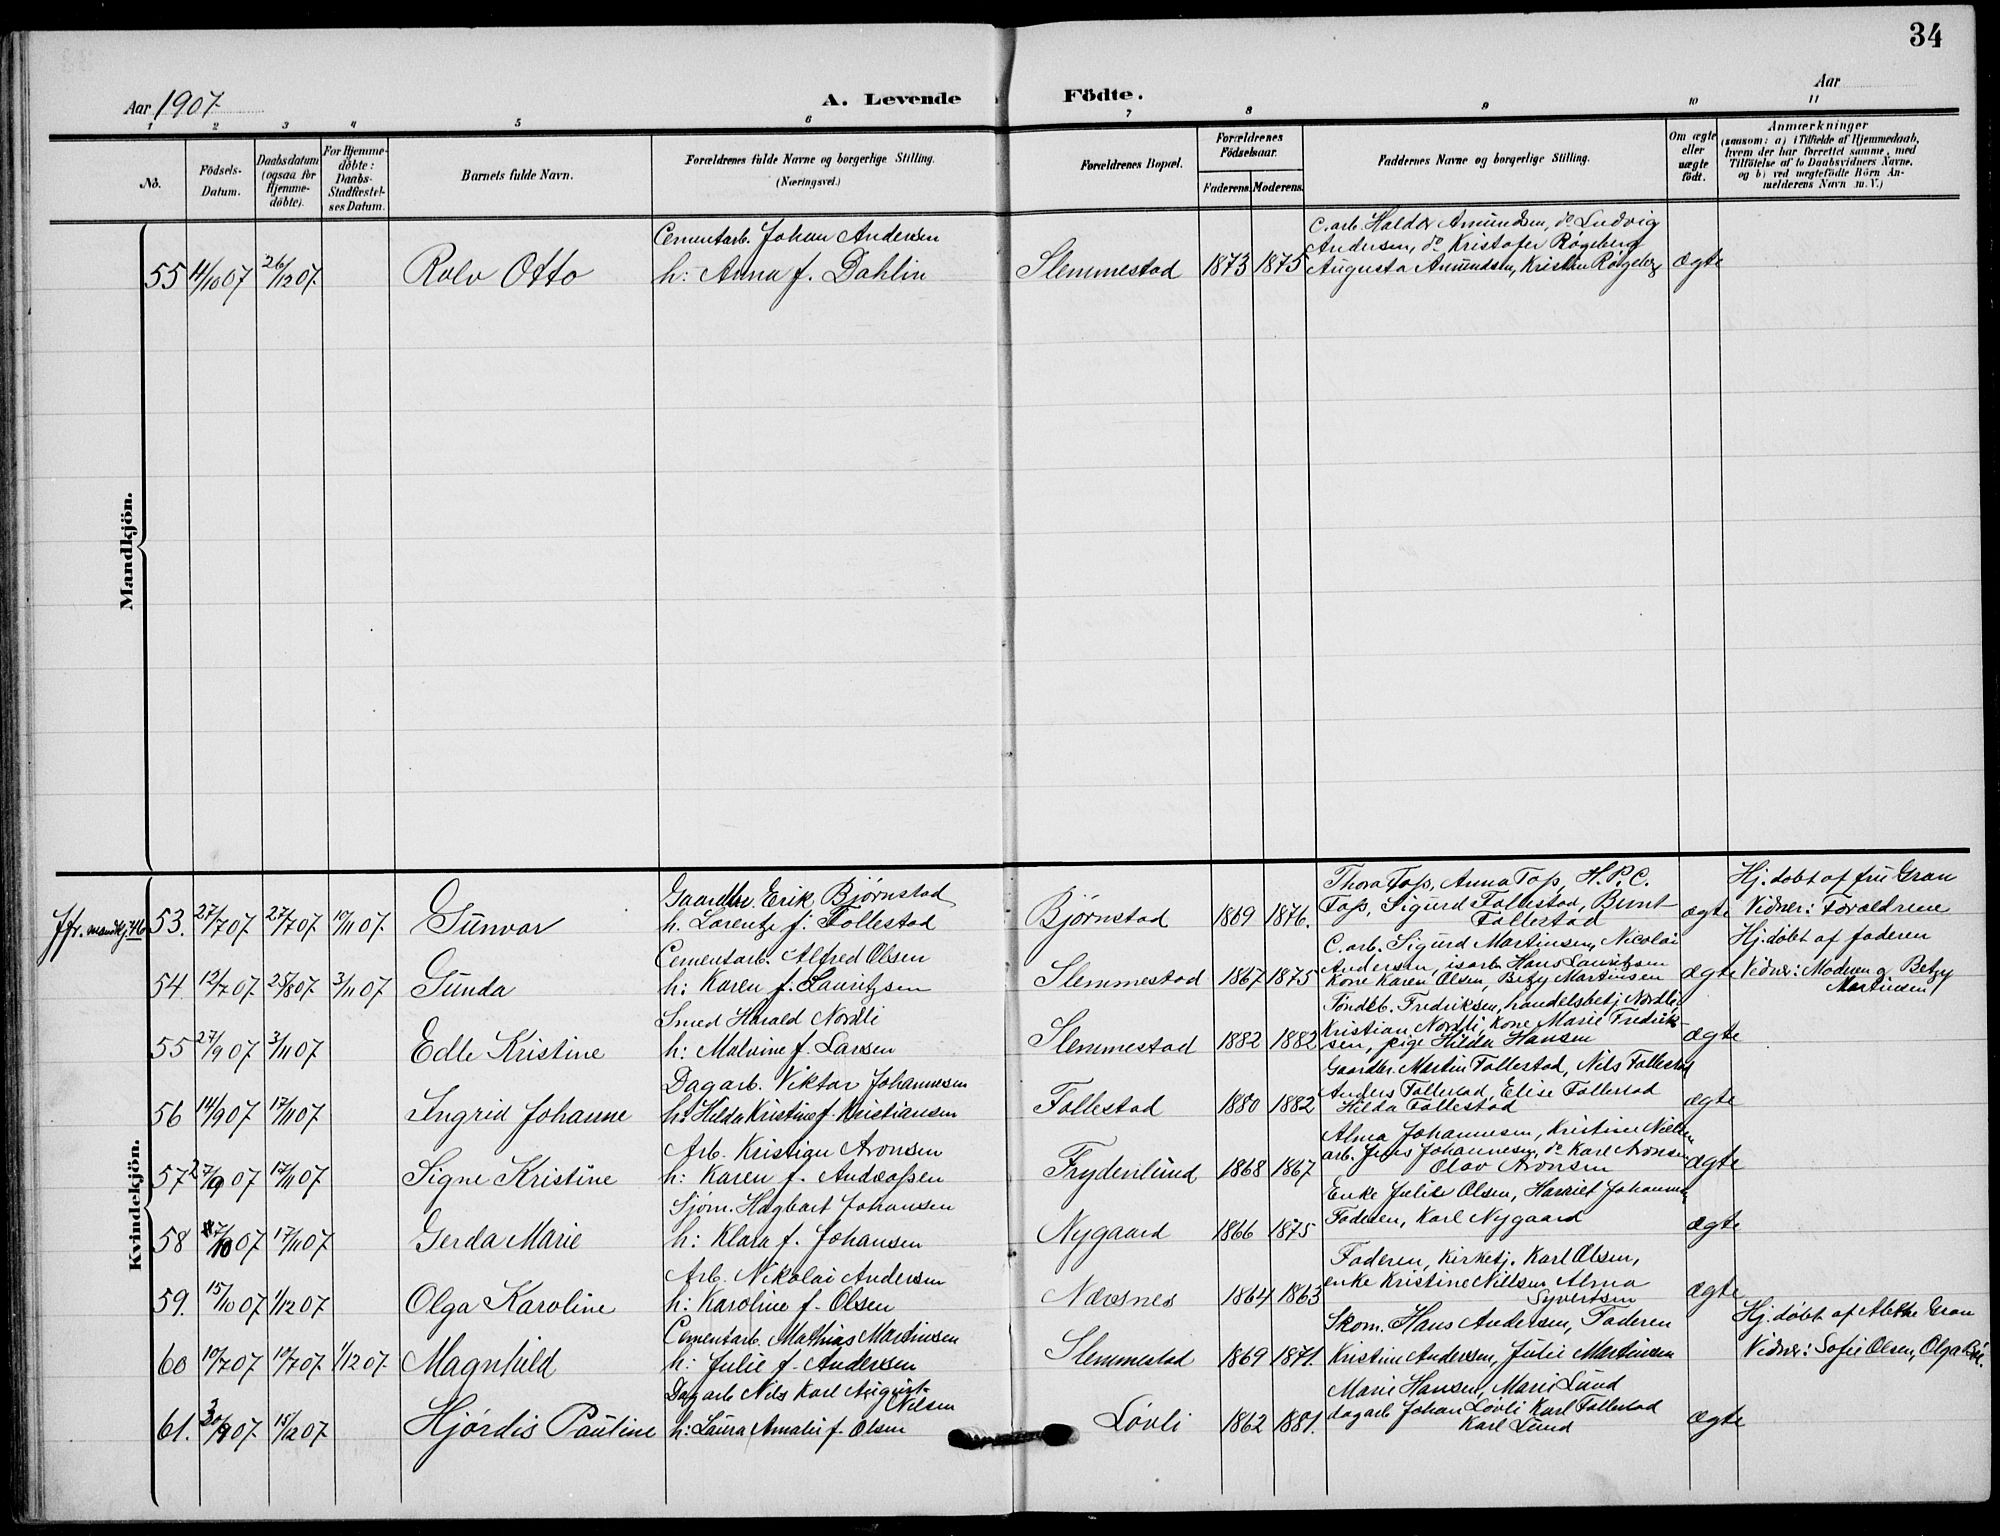 34
Aar 1907
A. Levende Födte.
Aar
1 2 3 4 5 6 7 8 9 10 11
No.
Födsels-Datum.
Daabsdatum (ogsaa for Hjemme-döbte).
For Hjemme-döbte: Daabs-Stadfæstel-ses Datum.
Barnets fulde Navn.
Forældrenes fulde Navne og borgerlige Stilling. (Næringsvei.)
Forældrenes Bopæl.
Forældrenes Födselsaar.
Faderens. Moderens.
Faddernes Navne og borgerlige Stilling.
Om ægte eller uægte födt.
Anmærkninger
(saasom: a) i Tilfælde af Hjemmedaab,
hvem der har forrettet samme, med
Tilföielse af to Daabsvidners Navne,
og b) ved uægtefödte Börn An-
melderens Navn m.V.)
Mandkjön.
Cementarb. Johan Andersen
55 4/10 07 26/12 07. Rolv Otto h: Anna f. Dahlin Slemmestad 1873 1875 ægte
C. arb. Haldor Amundsen, do Ludvig
Andersen, do Kristofer Røgeberg
Augusta Amundsen, Kristine Røgeberg
Kvindekjön.
Jfr. mandkj. 46
Gaardbr. Erik Bjørnstad
53. 27/7 07 27/7 07. 10/11 07. Gunvor h. Lorentze f. Follestad Bjørnstad 1869 1876. ægte
Thora Top, Anna Top, H. P. C.
Top, Sigurd Follestad, Bernt
Follestad
Hj. døbt af fru Gran
Vidner: Forældrene
Cementarb. Alfred Olsen
54 12/7 07. 25/8 07. 3/11 07 Gunda h: Karen f. Lauritzsen Slemmestad 1867 1875 ægte
C. arb. Sigurd Martinsen, Nicolai
Andersen, isarb. Hans Lauritzsen
Kone Karen Olsen, Betzy Martinsen
Hj. døbt af faderen
Vidner: Moderen og Betzy
Martinsen
Smed Harald Nordli
55 27/9 07 3/11 07 Edle Kristine h: Malvine f. Larsen Slemmestad 1882 1882 ægte
Tøndeb. Fredriksen, handelsbetj. Nordli,
Kristian Nordli, kone Marie Fredrik-
sen, pige Hilda Hansen
Dagarb. Viktor Johannesen
56 14/9 07 17/11 07 Ingrid Johanne h: Hilda Kristine f. Kristiansen Follestad 1880 1882 ægte
Gaardbr. Martin Follestad, Nils Follestad
Anders Follestad, Elise Follestad
Hilda Follestad
Arb. Kristian Aronsen
57 27/9 07 17/11 07 Signe Kristine h: Karen f. Andreassen Frydenlund 1868 1867 ægte
Alma Johannesen, Kristine Nielsen
arb. Jens Johannesen, do Karl Aronsen
Olav Aronsen
Sjøm. Hagbart Johansen
58 7/10 07 17/11 07 Gerda Marie h: Klara f. Johansen Nygaard 1866 1875 ægte
Enke Julie Olsen, Harriet Johansen,
Faderen, Karl Nygaard
Arb. Nikolai Andersen
59. 15/10 07 1/12 07 Olga Karoline h: Karoline f. Olsen Næsnes 1864 1863 ægte
Faderen, Kirketj. Karl Olsen,
enke Kristine Nielsen, Alma
Syvertsen
Cementarb. Mathias Martinsen
60 10/7 07 10/7 07. 1/12 07. Magnhild h: Julie f. Andersen Slemmestad 1869 1871.
Skom. Hans Andersen, Faderen
Kristine Andersen, Julie Martinsen
Hj. døbt af Gran
Vidner: Sofie Olsen, Olga
Dagarb. Nils Karl August Nilsen
61. 30/9 07 15/12 07 Hjørdis Pauline h: Laura Amalie f. Olsen Løvli 1862 1881. ægte
Marie Hansen, Marie Lund
dagarb. Johan Løvli, Karl Follestad
Karl Lund